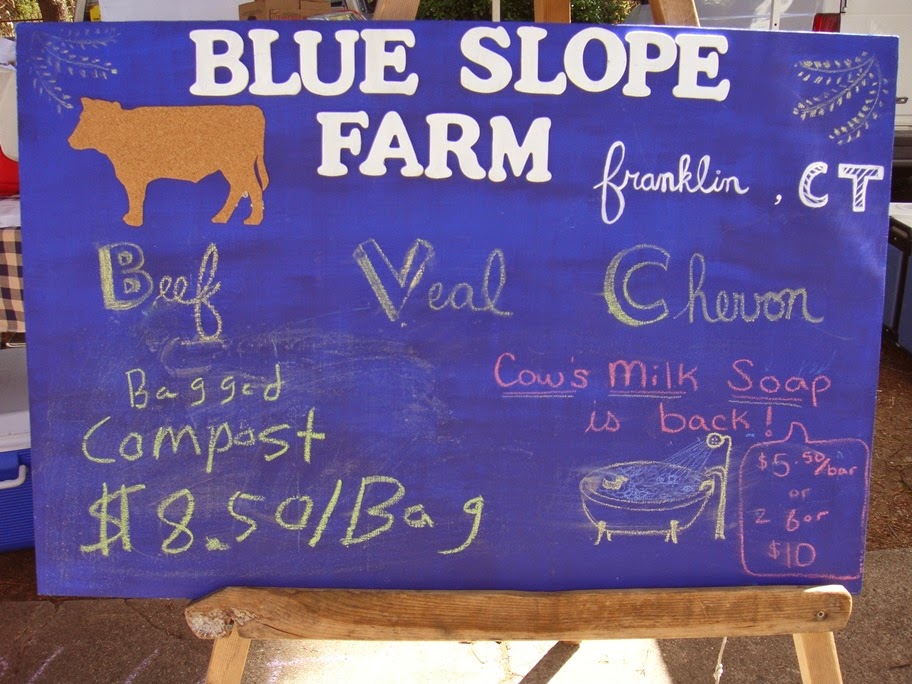 BLUE SLOPE
FARM
franklin, CT
Beef Veal Chevon
Bagged
Compost
$8.50/Bag
Cow's Milk Soap
is back!
$5.50/bar
or
2 for
$10